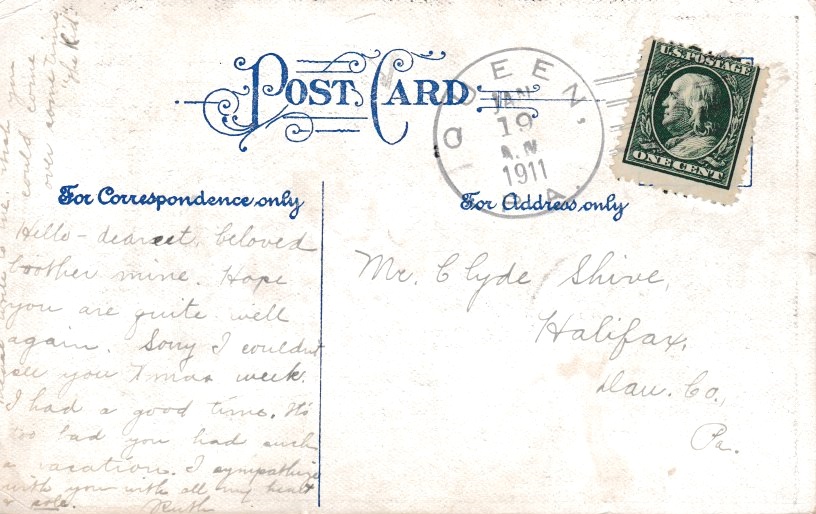 POST CARD
QUEEN,
JAN
19
A.M
1911
PA.
U.S. POSTAGE
ONE CENT
For Correspondence only
For Address only
Hello - dearest, beloved
brother mine. Hope
you are quite well
again. Sorry I couldn't
see you Xmas week.
I had a good time. It's
too bad you had such
a vacation. I sympathize
with you with all my heart
& sole.
Ruth
write to me. wish you
could come
over some time
"The Kid"
Mr. Clyde Shive,
Halifax,
Dau. Co.,
Pa.